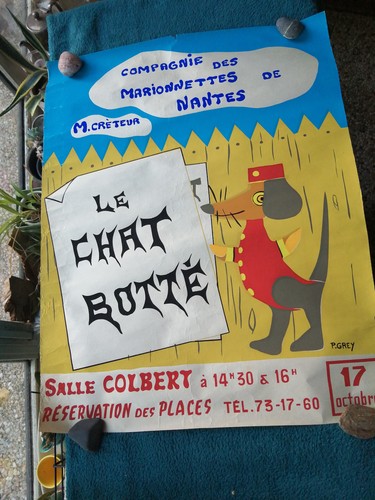 COMPAGNIE DES
MARIONNETTES DE
NANTES
M. CRÈTEUR
LE
CHAT
BOTTÉ
P. GREY
SALLE COLBERT à 14H30 & 16H
RÉSERVATION DES PLACES TÉL. 73-17-60
17
octobre